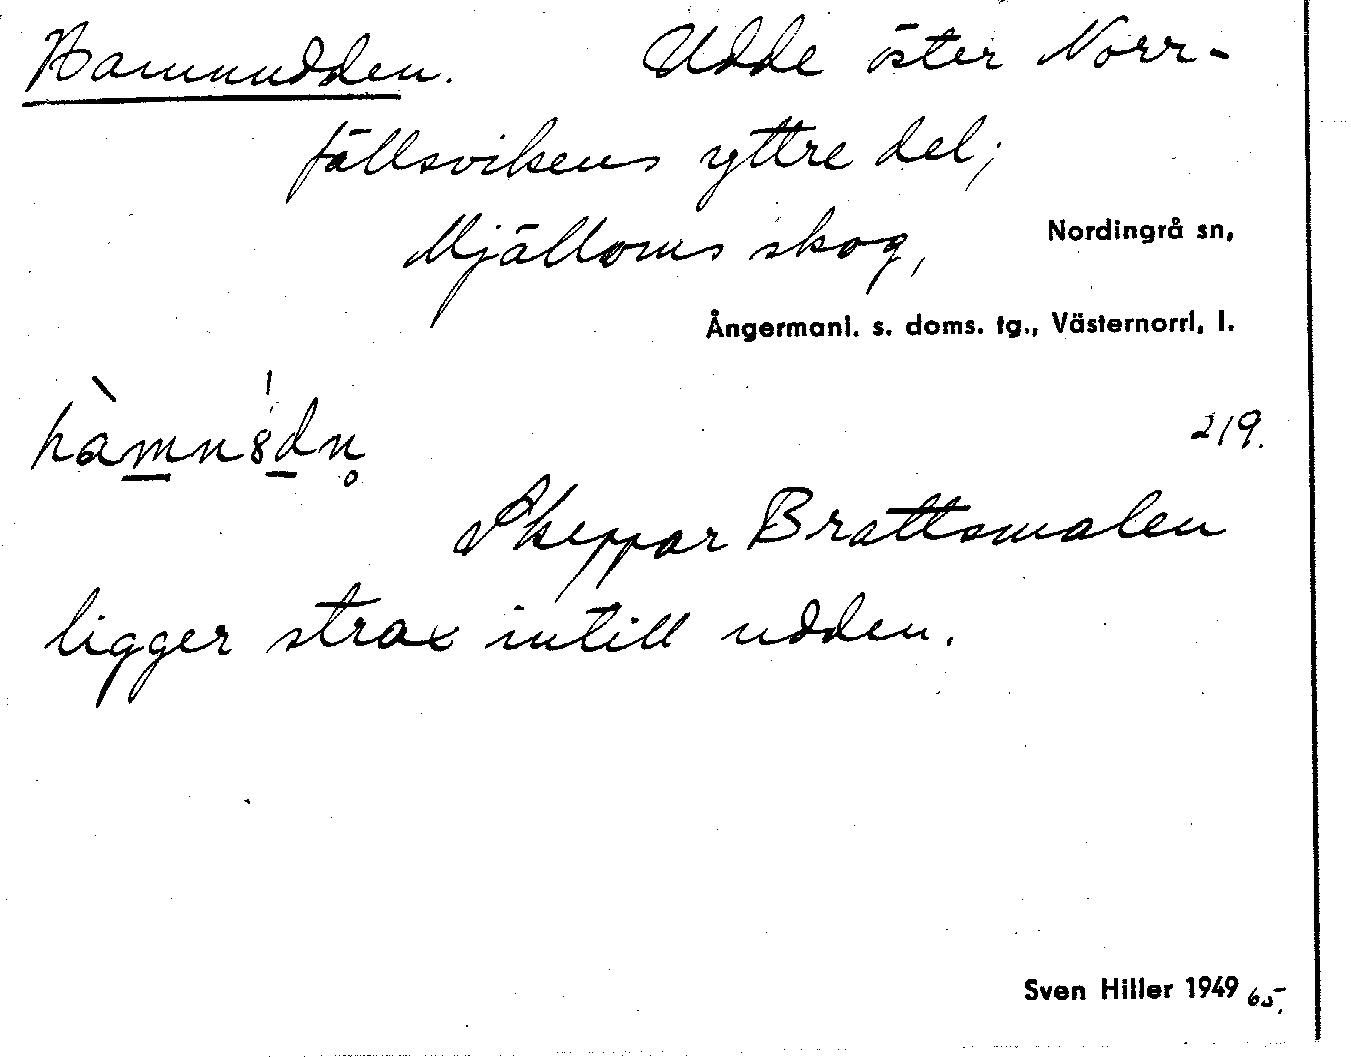 Hamnudden. Udde öster Norr-
fällsvikens yttre del;
Mjälloms skog, Nordingrå sn,
Ångermanl. s. doms. tg., Västernorrl. l.
hàmn8dn̥
219.
Skeppar Brattsmalen
ligger strax intill udden.
Sven Hiller 1949 65.